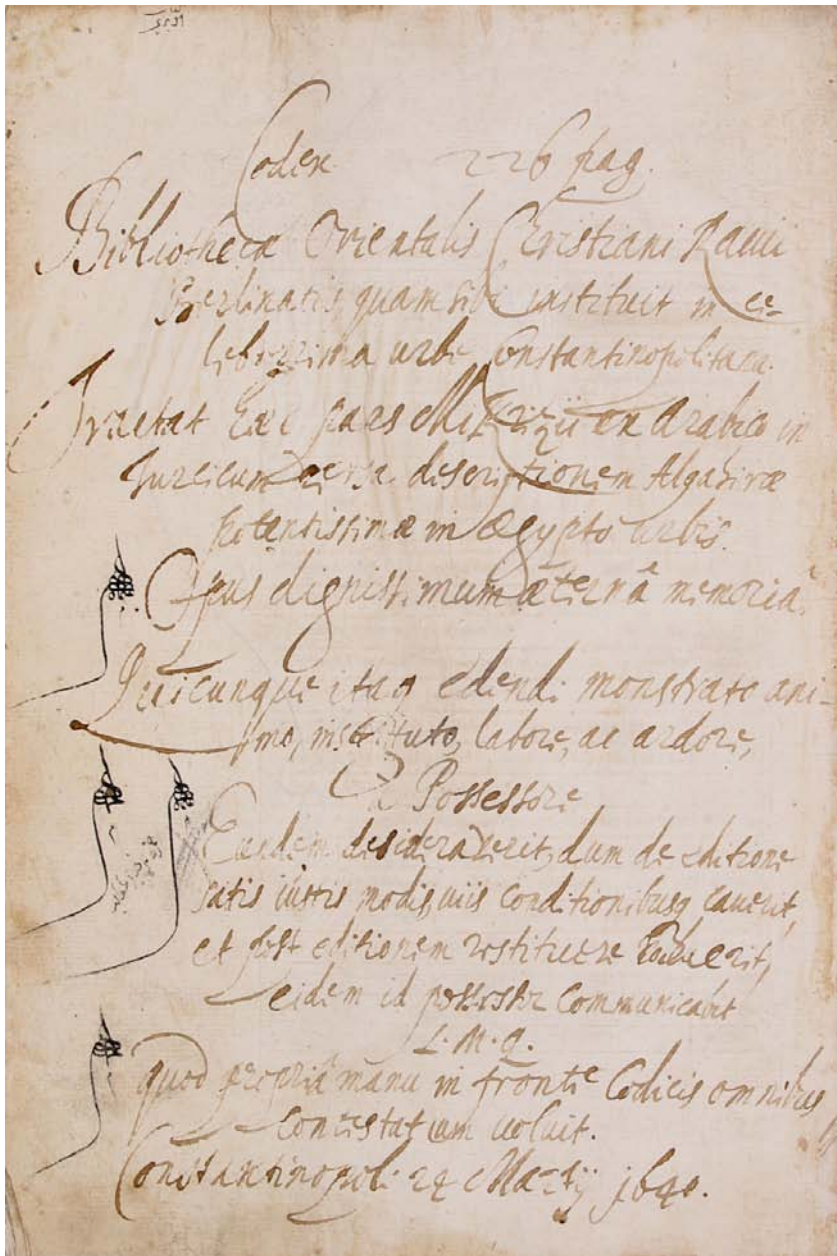 Codex 226 pag.
Bibliothecæ Orientalis Christiani Ravii
Berlinatis, quam sibi instituit in ce-
leberrima urbe Constantinopolitana.
Tractat hæc pars Mikrizii ex Arabico in
Turcicum versa descriptionem Algahiræ
potentissimæ in Ægypto urbis.
Opus dignissimum æternâ memoriâ.
Quicunque itaq edendi monstrato ani-
mo, instituto, labore, ac ardore,
a Possessore
Eundem desideraverit, dum de editione
satis iustis modis, viis conditionibusq caverit,
et post editionem restituere
eidem id possessor communicabit
L. M. q.
quod propriâ manu in fronte Codicis omnibus
contestatum voluit.
Constantinopoli 24 Martij 1640.